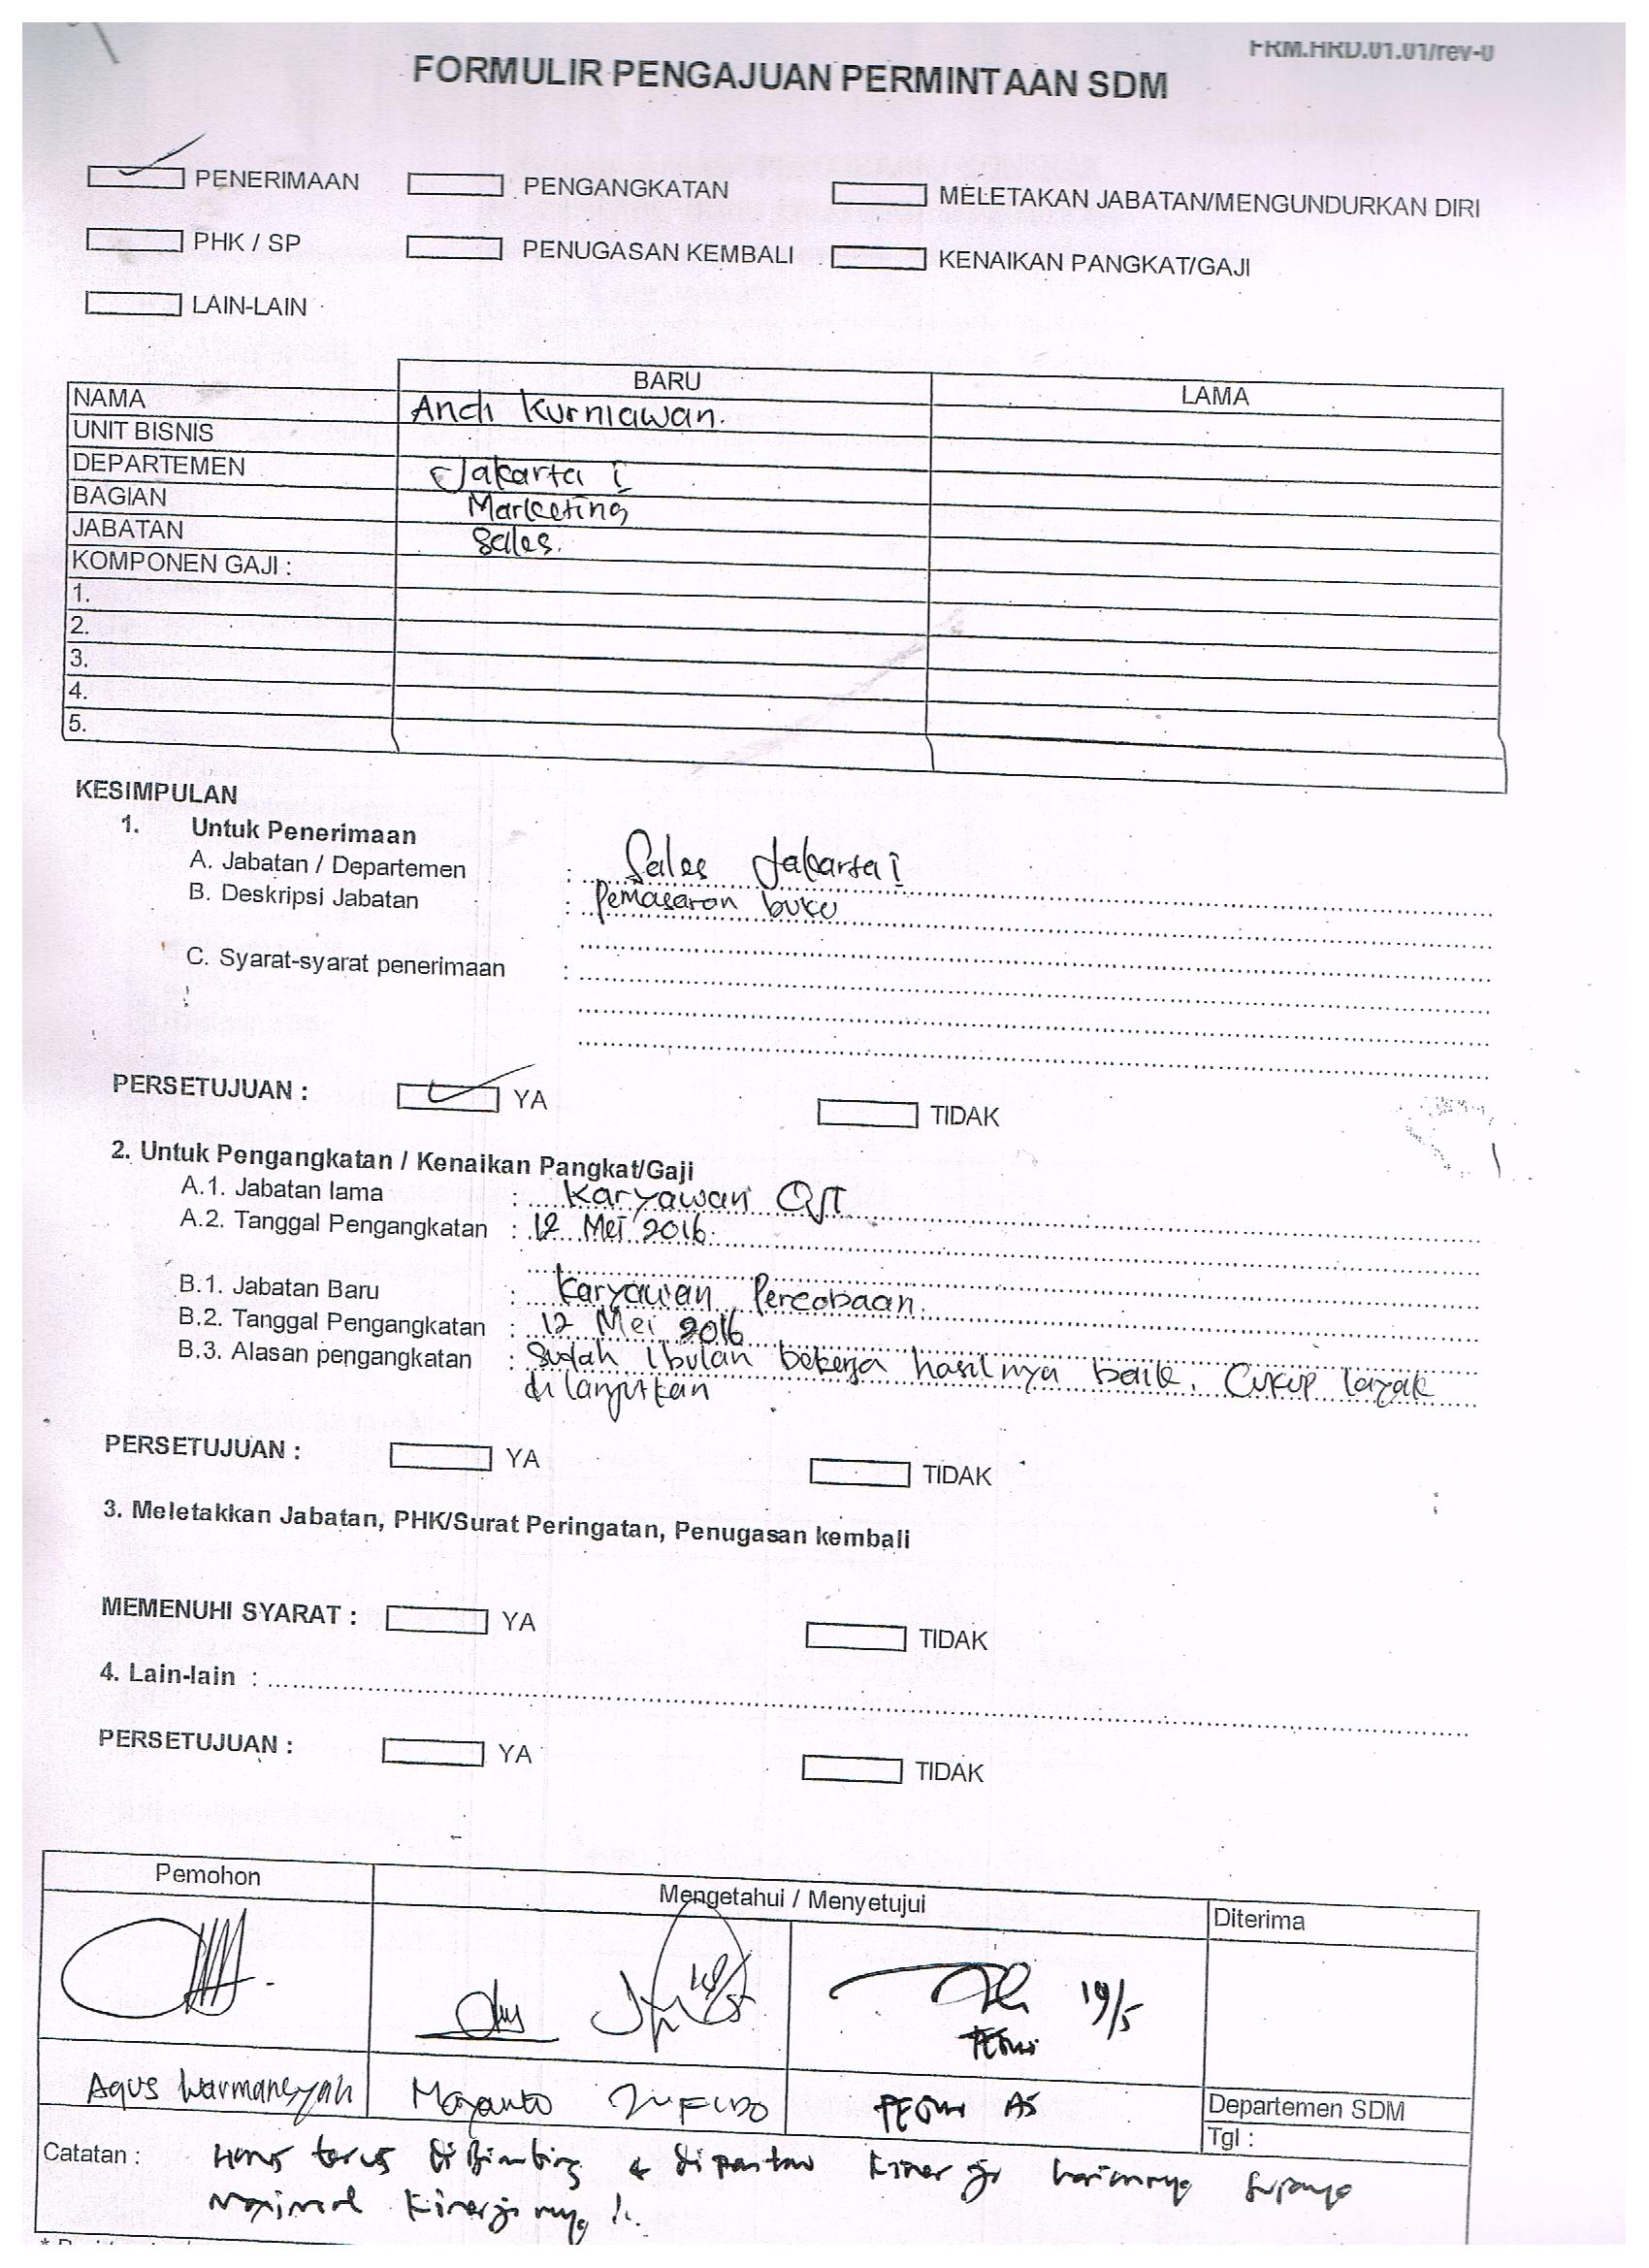 FRM.HRD.01.01/rev-0
FORMULIR PENGAJUAN PERMINTAAN SDM
PENERIMAAN PENGANGKATAN MELETAKAN JABATAN/MENGUNDURKAN DIRI
PHK / SP PENUGASAN KEMBALI KENAIKAN PANGKAT/GAJI
LAIN-LAIN
BARU LAMA
NAMA Andi Kurniawan.
UNIT BISNIS
DEPARTEMEN Jakarta I
BAGIAN Marketing
JABATAN Sales.
KOMPONEN GAJI :
1.
2.
3.
4.
5.
KESIMPULAN
1. Untuk Penerimaan
A. Jabatan / Departemen : Sales Jakarta I
B. Deskripsi Jabatan : Pemasaran buku
C. Syarat-syarat penerimaan :
PERSETUJUAN : YA TIDAK
2. Untuk Pengangkatan / Kenaikan Pangkat/Gaji
A.1. Jabatan lama : Karyawan OJT
A.2. Tanggal Pengangkatan : 12 Mei 2016.
B.1. Jabatan Baru : Karyawan Percobaan.
B.2. Tanggal Pengangkatan : 12 Mei 2016
B.3. Alasan pengangkatan : Sudah 1 bulan bekerja hasilnya baik. Cukup layak
dilanjutkan
PERSETUJUAN : YA TIDAK
3. Meletakkan Jabatan, PHK/Surat Peringatan, Penugasan kembali
MEMENUHI SYARAT : YA TIDAK
4. Lain-lain :
PERSETUJUAN : YA TIDAK
Pemohon Mengetahui / Menyetujui Diterima
19/5
Agus Warmansyah Moyanto
Departemen SDM
Tgl :
Catatan : Harus terus diBimbing & dipantau kinerja hariannya supaya
maximal kinerjanya !.